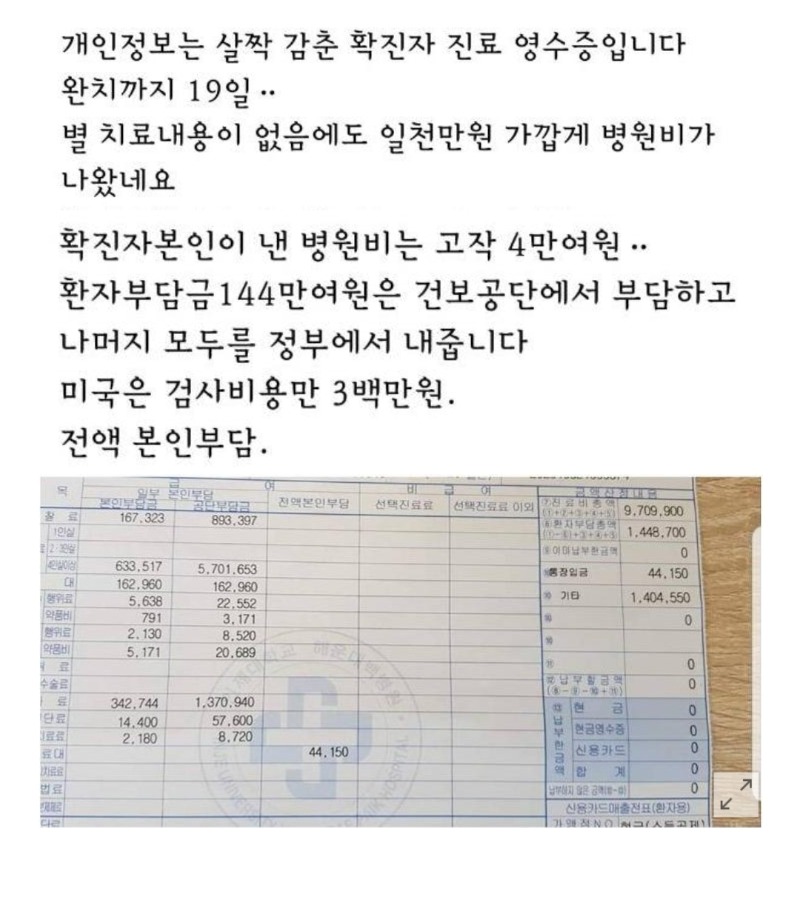 개인정보는 살짝 감춘 확진자 진료 영수증입니다
완치까지 19일··
별 치료내용이 없음에도 일천만원 가깝게 병원비가
나왔네요
확진자본인이 낸 병원비는 고작 4만여원··
환자부담금144만여원은 건보공단에서 부담하고
나머지 모두를 정부에서 내줍니다
미국은 검사비용만 3백만원.
전액 본인부담.
목 급 여 비 급 여 금액산정내용
일부 본인부담
본인부담금 공단부담금 전액본인부담 선택진료료 선택진료료 이외
⑦진료비총액 9,709,900
(①+②+③+④+⑤)
⑧환자부담총액 1,448,700
(①-⑥)+③+④+⑤
⑨이미납부한금액 0
통장입금 44,150
⑩ 기타 1,404,550
0
0
찰 료 167,323 893,397
1인실
2·3인실
4인실이상 633,517 5,701,653
대 162,960 162,960
행위료 5,638 22,552
약품비 791 3,171
행위료 2,130 8,520
약품비 5,171 20,689
료
수술료
료 342,744 1,370,940
단료 14,400 57,600
료료 2,180 8,720
료대 44,150
납부할금액 0
(⑧-⑨-⑩+⑪)
납부한금액
현 금 0
현금영수증 0
신용카드 0
합 계 0
납부하지 않은 금액 0
신용카드매출전표(환자용)
해운대백병원
UNIVERSITY
PAIK HOSPITAL